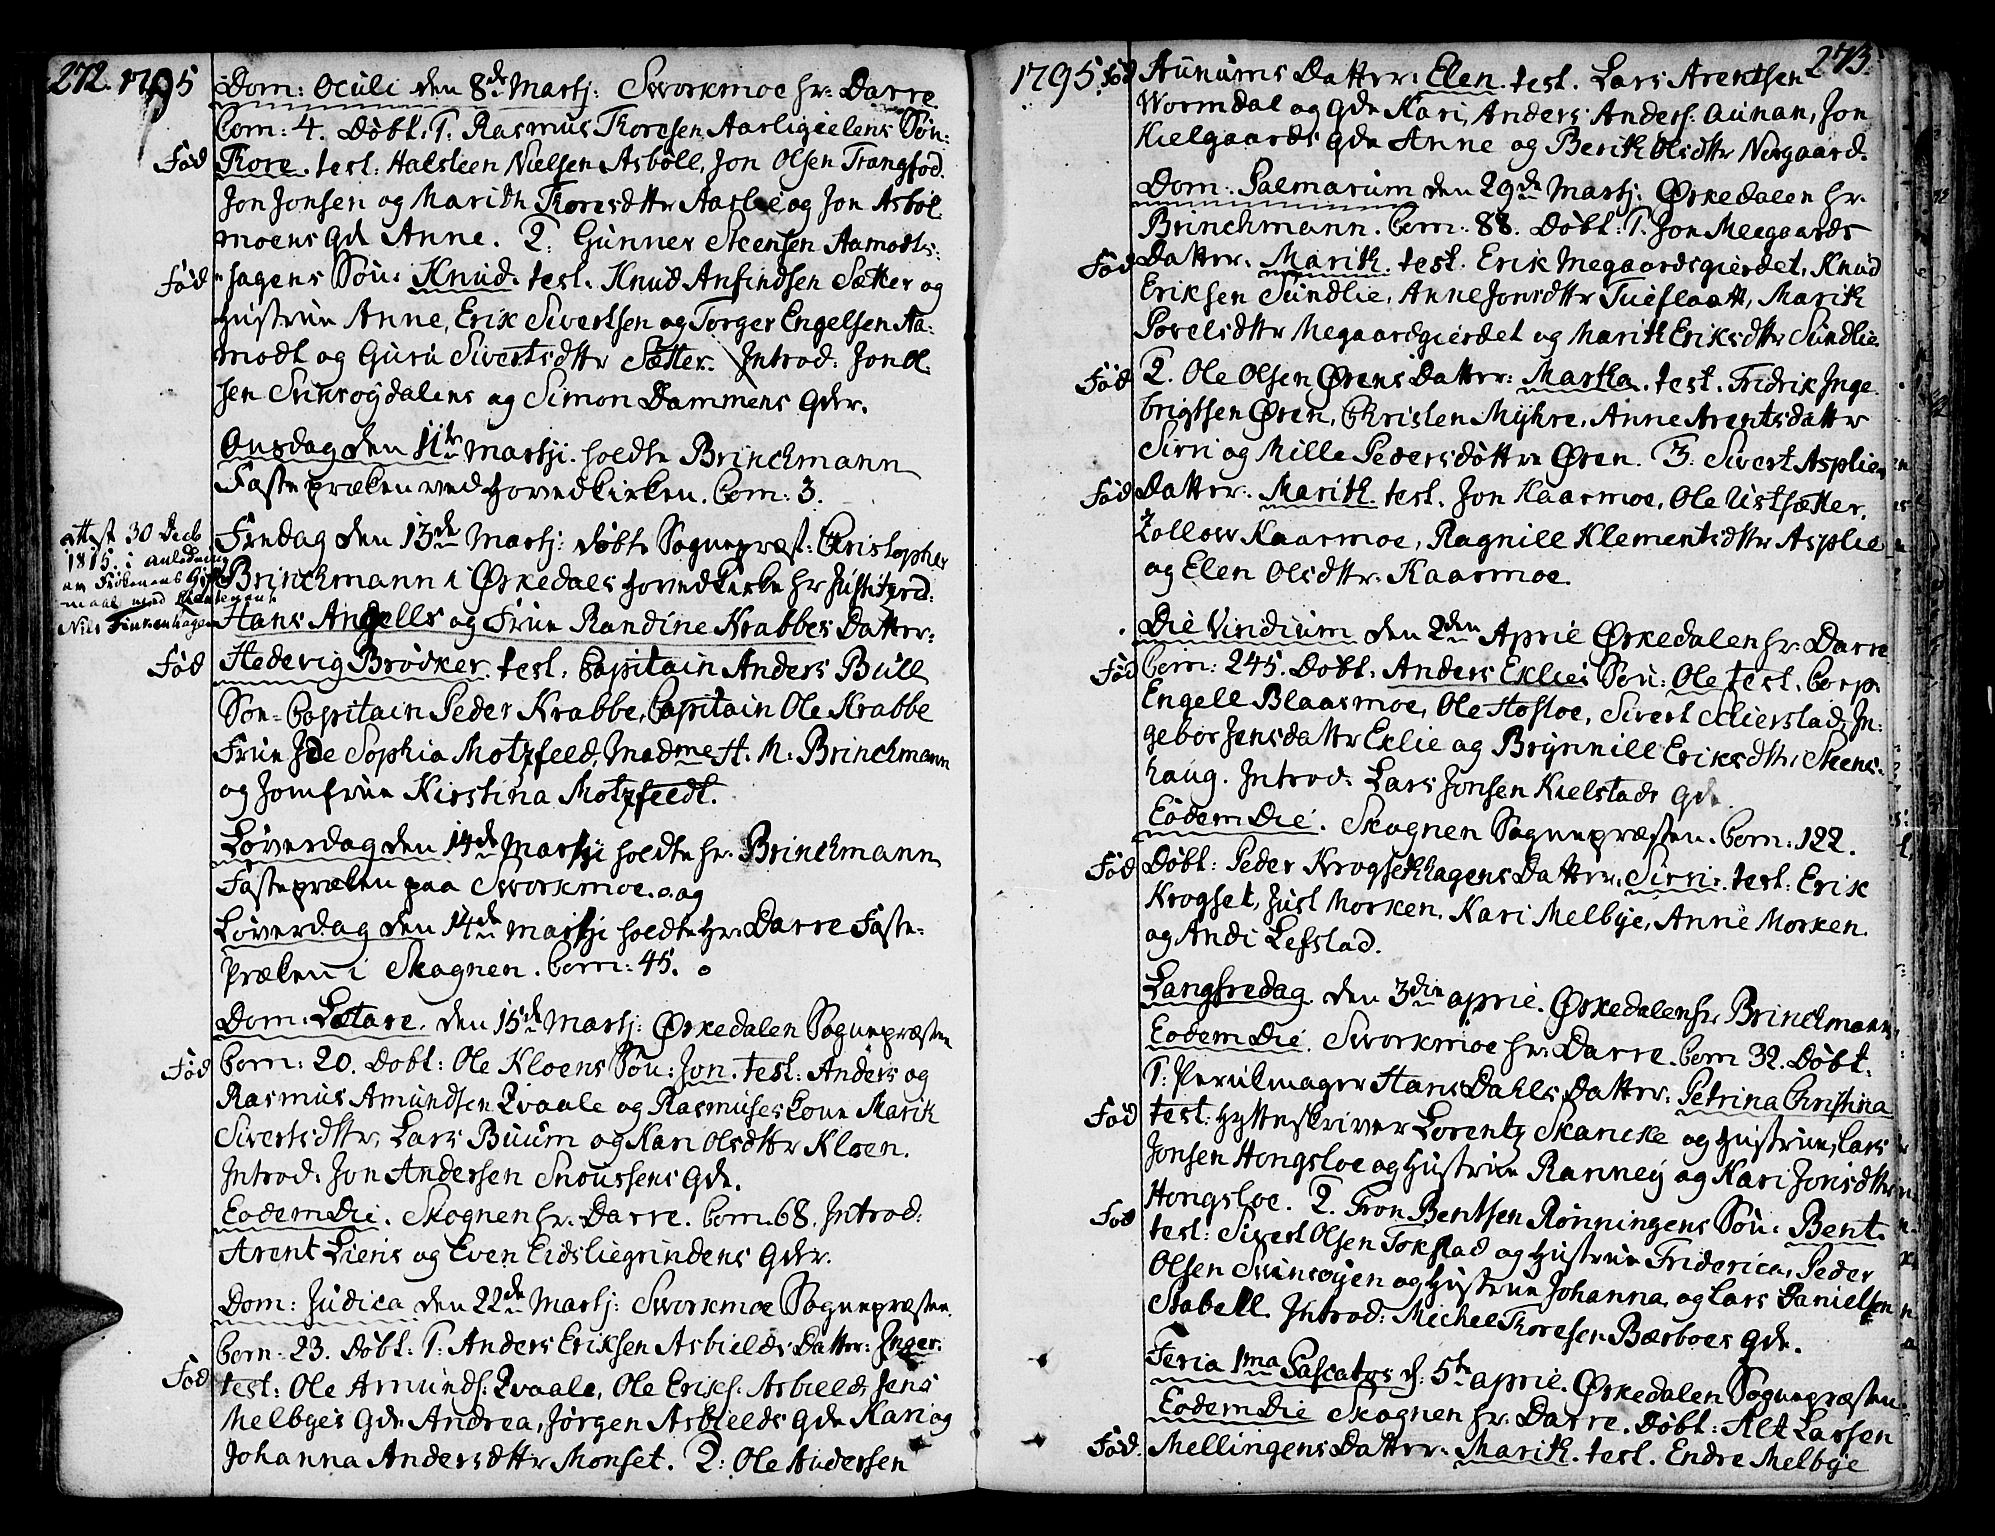 272. 1795
Dom: Oculi den 8de Martj: Sworkmoe hr: Darre
Com: 4. Døbt: 1. Rasmus Thoresen Aarligielens Søn:
Fød Thore. test: Halsteen Nielsen Asbøll, Jon Olsen Trangfod.
Jon Jonsen og Marith Thoresdttr Aarlie og Jon Asbøl
moens Qde Anne. 2: Gunner Steensen Aamodts:
Fød hagens Søn: Knud. test. Knud Anfindsen Sætter og
Hustrue Anne, Erik Sivertsen og Torger Engelsen Aa:
modt og Guru Sivertsdttr Sætter. Introd: Jon Ol
sen Svinsøgdalens og Simon Dammens Qder.
Onsdag den 11te Martji holdte Brinchmann
Fasteprælen ved Hovedkirken. Com: 3.
attest 30 Decb
1815. i anledning
af Frøkenens Gifter
maal med Lieutenant
Niels Finkenhagen
Fredag den 13de Martj: døbte Sognepræst: Christopher
Brinchmann i Ørkedals Hovedkirke hr Justitzrd:
Hans Angells og Frue Randine Krabbes Datter:
Fød Hedevig Brødker. test. Capitain Anders Bull
Søn- Capitain Peder Krabbe, Capitain Ole Krabbe
Frue Ide Sophia Motzfeed, Madme H. M. Brinchmann
og Jomfrue Kirstina Motzfeedt.
Løverdag den 14de Martji holdte hr: Brinchmann
Fasteprælen paa Sworkmoe. o. og
Løverdag den 14de Martji holdte Hr: Darre Faste:
Prælen i Skognen. Com: 45. o
Dom: Lætare. den 15de Martj: Ørkedalen Sognepræsten
Fød Com: 20. Døbt: Ole Kloens Søn: Jon. test: Anders og
Rasmus Amundsen Qvaale og Rasmuses Kone Marith
Sivertsdttr. Lars Buum og Kari Olsdttr Kloen.
Introd: Jon Andersen Snoussens Qde.
Eodem Die. Skognen hr. Darre. Com. 68. Introd:
Arent Liens og Even Eidsliegrindens Qder.
Dom: Judica den 22de Martj: Sworkmoe Sognepræsten.
Com: 23. Døbt: 1. Anders Eriksen Asbields Datter: Inger.
Fød test: Ole Amunds: Qvaale, Ole Eriks: Asbield, Jens
Melbyes Qde Andrea, Jørgen Asbields Qde Kari og
Johanna Andersdttr Monset. 2: Ole Andersen
1795. 273.
Fød Aunums Datter: Elen. test. Lars Arentsen
Wormdal og Qde Kari, Anders Anders: Aunan, Jon
Kielgaards Qde Anne og Berith Olsdttr Norgaard.
Dom: Palmarum den 29de Martj: Ørkedalen hr.
Brinchmann. Com: 88. Døbt: 1. Jon Meegaards
Fød Datter: Marith. test. Erik Megaardsgierdet, Knud
Eriksen Sundlie, Anne Jonsdttr Tueflaatt, Marith
Povelsdttr Megaardgierdet og Marith Eriksdttr Sundlie
Fød 2. Ole Olsen Ørens Datter: Martha. test. Fridrik Inge
brigtsen Øren, Christen Myhre, Anne Arentsdatter
Sirri og Mille Pedersdøttre Øren. 3. Sivert Asplies
Fød Datter: Marith. test. Jon Kaarmoe, Ole Ustsætter,
Rollow Kaarmoe, Ragnill Klementsdttr Asplie
og Elen Olsdttr. Kaarmoe.
Die Viridium den 2den Aprie Ørkedalen hr: Darre
Fød Com: 245. Døbt: Anders Eklies Søn: Ole test. Corp.
Engell Blaasmoe, Ole Hofloe, Sivert Schierstad, In:
gebor Jensdatter Eklie og Brynnill Eriksdttr. Steens:
haug. Introd: Lars Jonsen Kielstads Qde.
Eodem Die. Skognen Sognepræsten. Com: 122.
Fød Døbt: Peder Krogsethagens Datter: Sirri. test: Erik
Krogset, Just Morken, Kari Melbye, Anne Morken
og Andi Lefstad.
Langfredag den 3die aprie. Ørkedalen hr Brinchmann
Eodem Die. Sworkmoe hr: Darre. Com 32. Døbt.
1: Perukmager Hans Dahls Datter: Petrina Christina
Fød test: Hytteskriver Lorentz Skancke og Hustrue, Lars
Jonsen Hongsloe og Hustrue Ranney og Kari Jonsdttr
Hongsloe. 2. Tron Bentsen Rønningens Søn: Bent.
Fød test: Sivert Olsen Tokstad og Hustrue Friderica, Peder
Olsen Svinsøyen og Hustrue Johanna, og Lars Danielsen
Stabell. Introd: Michel Thoresen Bærboes Qde.
Feria 1ma Pascatos d: 5te aprie. Ørkedalen Sognepræsten.
Eodem Die Skognen hr. Darre. Døbt: Alt Larsen
Fød. Mellingens Datter: Marith. test. Endre Melbye